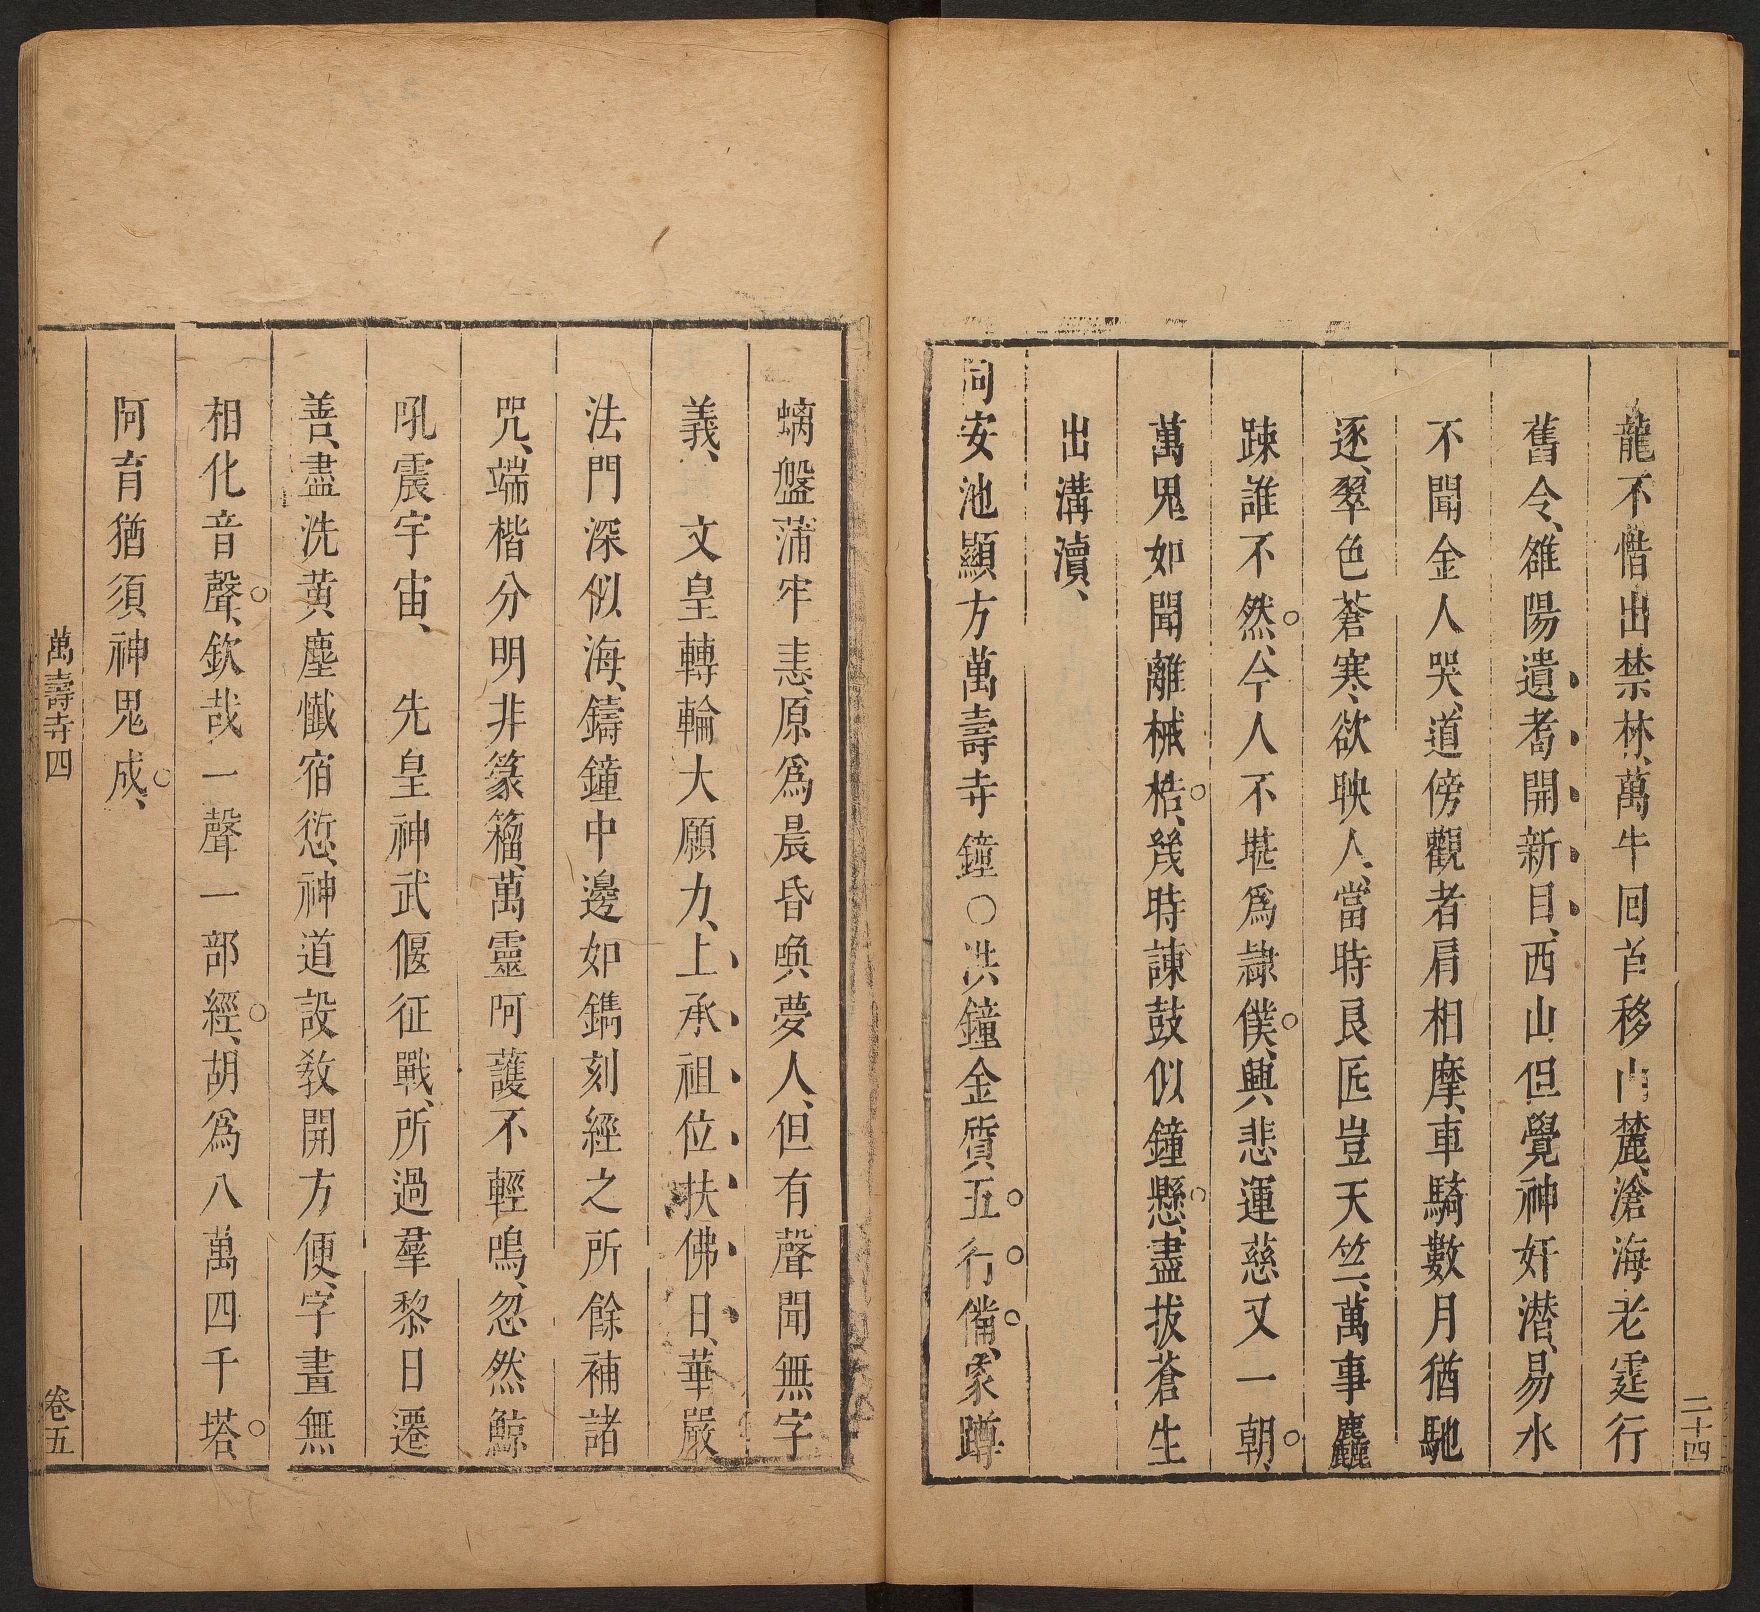 龍不惜出禁林、萬牛回首移山麓、滄海老霆行
舊令、雒陽遺耇開新目、西山但覺神奸潛、易水
不聞金人哭、道傍觀者肩相摩、車騎數月猶馳
逐、翠色蒼寒、欲映人、當時良匠豈天竺、萬事麤
疎誰不然、今人不堪爲隷僕、興悲運慈又一朝、
萬鬼如聞離械梏、幾時諫鼓似鐘懸、盡拔蒼生
出溝瀆、
同安池顯方萬壽寺鐘○洪鐘金質五行備、象蹲
二十四
螭盤蒲牢恚、原爲晨昏喚夢人、但有聲聞無字
義、文皇轉輪大願力、上承祖位扶佛日、華嚴
法門深似海、鑄鐘中邊如鐫刻經之所餘補諸
咒、端楷分明非篆籀、萬靈阿護不輕鳴、忽然鯨
吼震宇宙、先皇神武偃征戰、所過羣黎日遷
善、盡洗黃塵懺宿愆、神道設教開方便、字畫無
相化音聲、欽哉一聲一部經、胡爲八萬四千塔、
阿育猶須神鬼成、
萬壽寺四
卷五